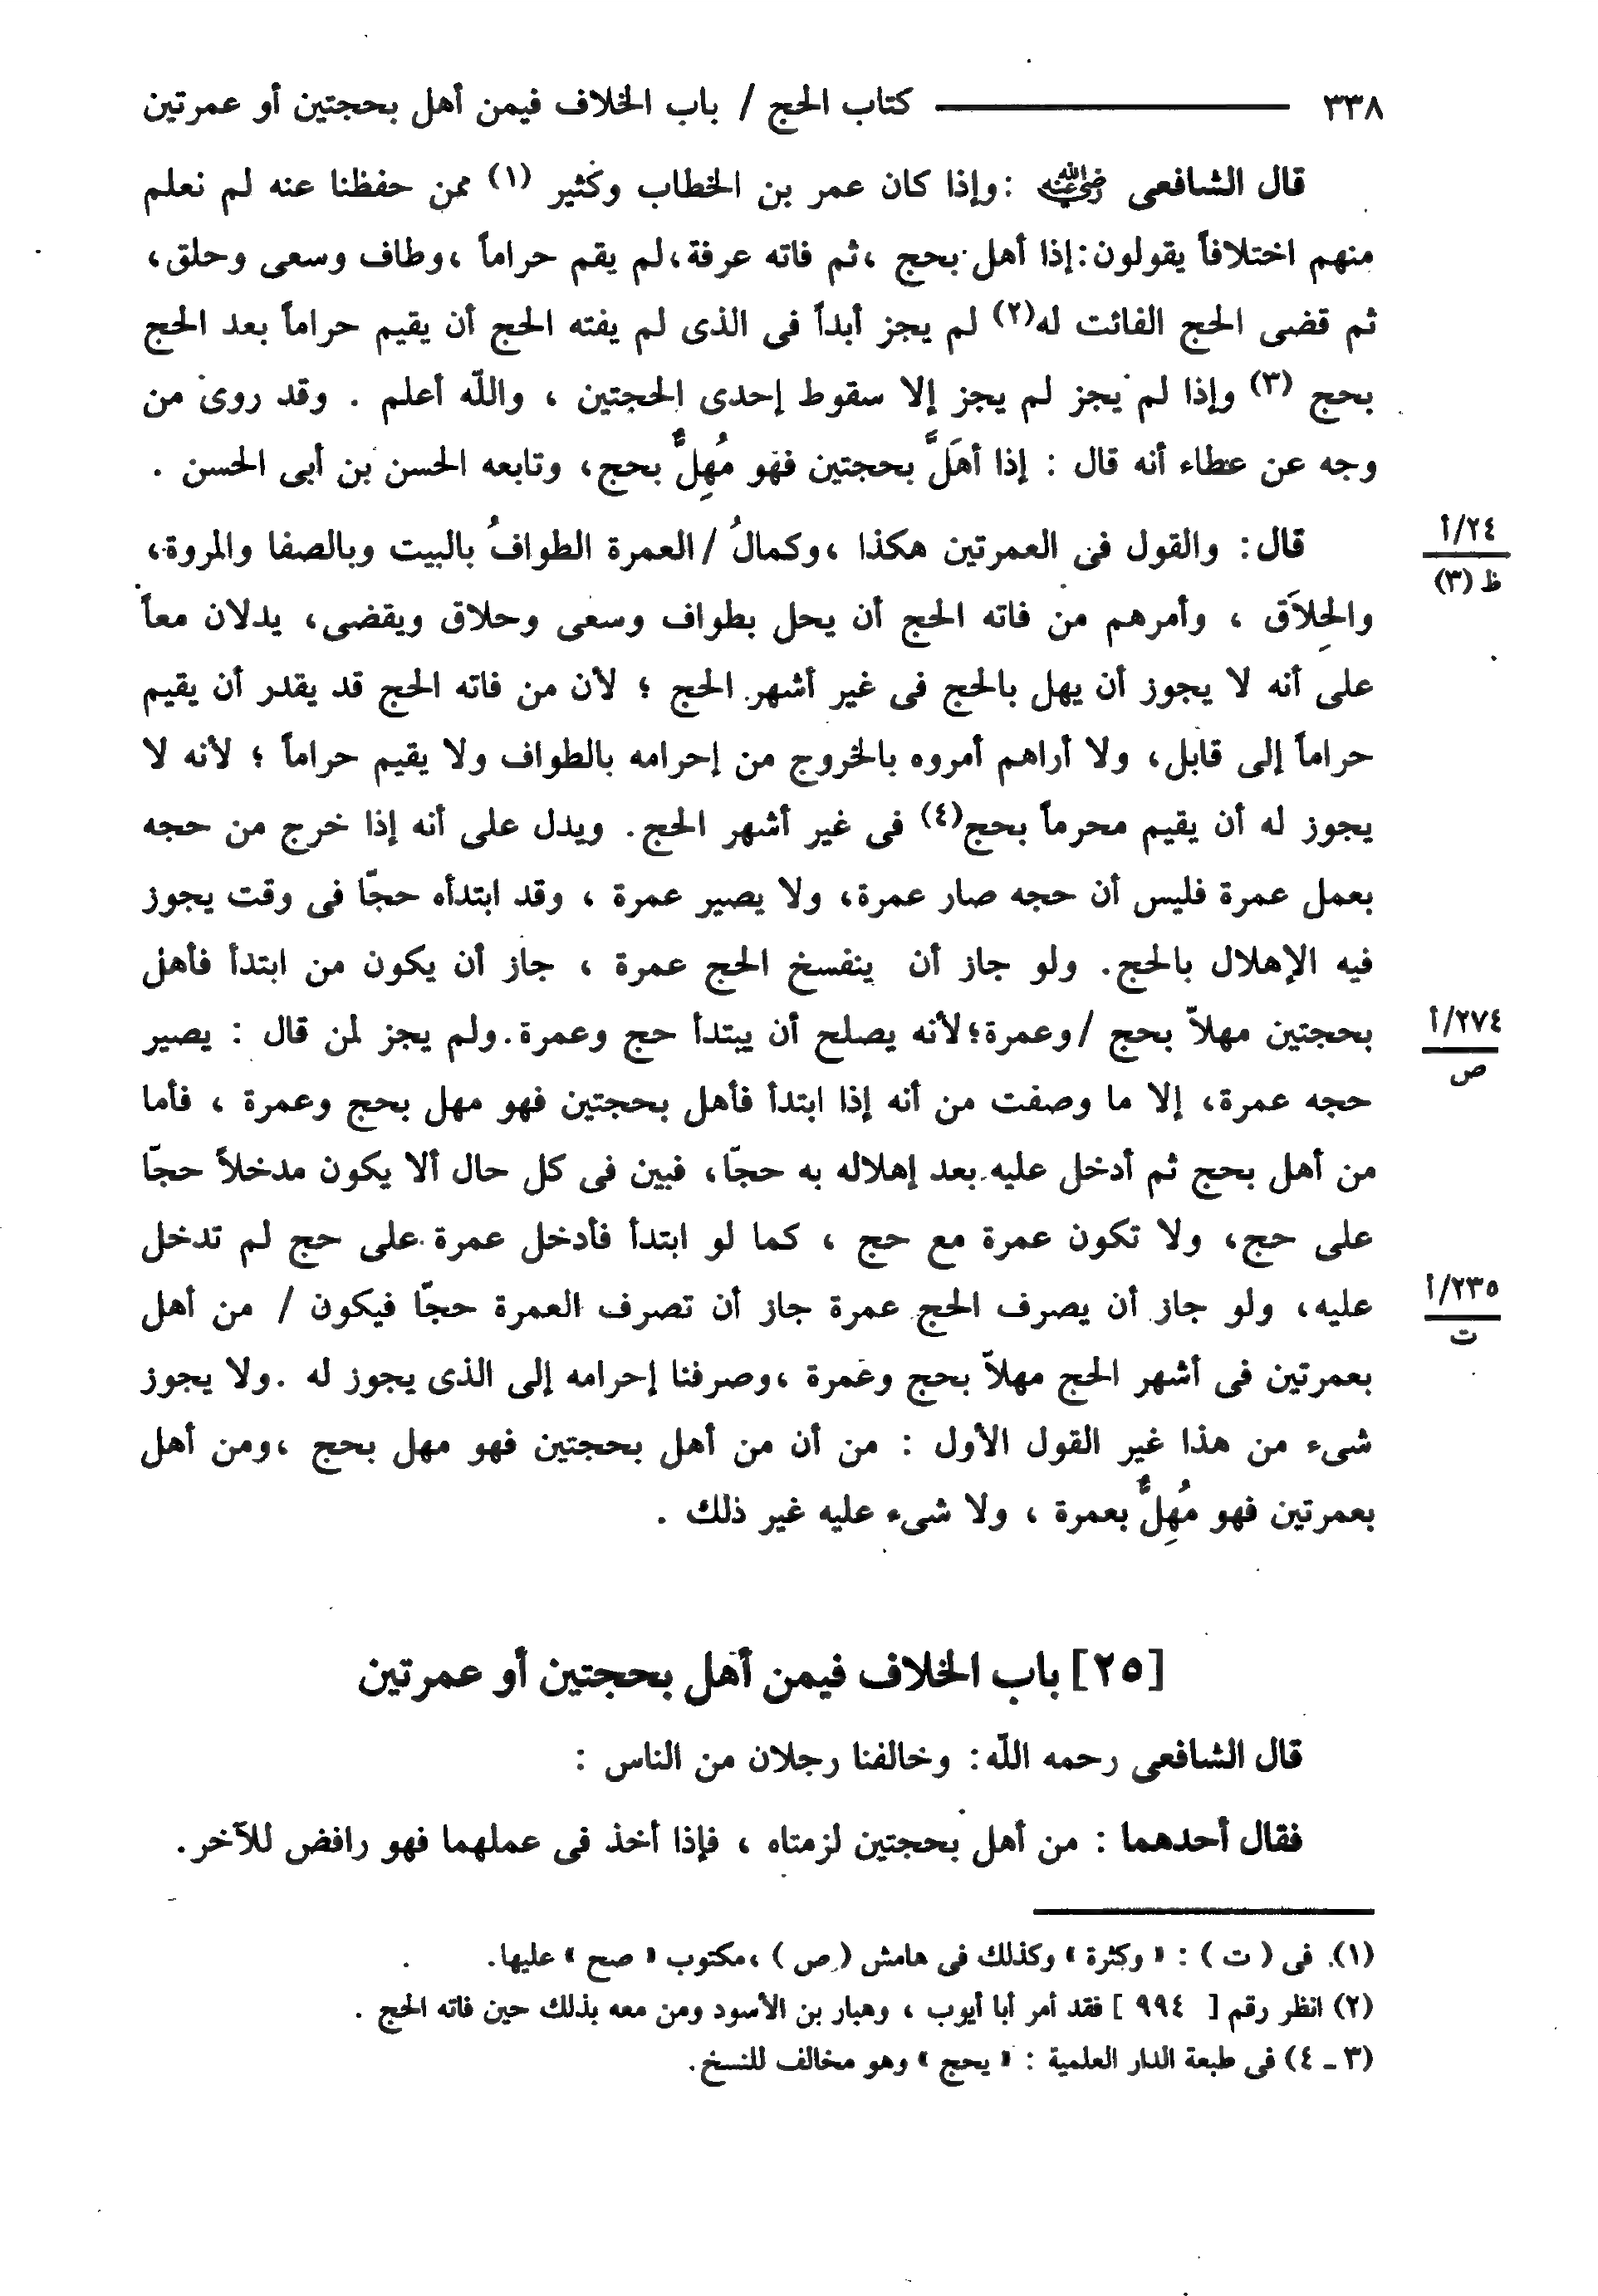 ٣٣٨ كتاب الحج / باب الخلاف فيمن أهل بحجتين أو عمرتين
قال الشافعى رضي الله عنه :وإذا كان عمر بن الخطاب وكثير (١) ممن حفظنا عنه لم نعلم
منهم اختلافاً يقولون:إذا أهل بحج ،ثم فاته عرفة،لم يقم حراماً ،وطاف وسعى وحلق،
ثم قضى الحج الفائت له(٢) لم يجز أبداً فى الذى لم يفته الحج أن يقيم حراماً بعد الحج
بحج (٣) وإذا لم يجز لم يجز إلا سقوط إحدى الحجتين ، واللّه أعلم . وقد روى من
وجه عن عطاء أنه قال : إذا أهَلَّ بحجتين فهو مُهِلٌّ بحج، وتابعه الحسن بن أبى الحسن .
قال: والقول فى العمرتين هكذا ،وكمالُ /العمرة الطوافُ بالبيت وبالصفا والمروة،
٢٤/أ
ظ (٣)
والحِلاَق ، وأمرهم من فاته الحج أن يحل بطواف وسعى وحلاق ويقضى، يدلان معاً
على أنه لا يجوز أن يهل بالحج فى غير أشهر الحج ؛ لأن من فاته الحج قد يقدر أن يقيم
حراماً إلى قابل، ولا أراهم أمروه بالخروج من إحرامه بالطواف ولا يقيم حراماً ؛ لأنه لا
يجوز له أن يقيم محرماً بحج(٤) فى غير أشهر الحج. ويدل على أنه إذا خرج من حجه
بعمل عمرة فليس أن حجه صار عمرة، ولا يصير عمرة ، وقد ابتدأه حجّا فى وقت يجوز
فيه الإهلال بالحج. ولو جاز أن ينفسخ الحج عمرة ، جاز أن يكون من ابتدأ فأهل
بحجتين مهلاّ بحج /وعمرة؛لأنه يصلح أن يبتدأ حج وعمرة.ولم يجز لمن قال : يصير
٢٧٤/أ
ص
حجه عمرة، إلا ما وصفت من أنه إذا ابتدأ فأهل بحجتين فهو مهل بحج وعمرة ، فأما
من أهل بحج ثم أدخل عليه بعد إهلاله به حجّا، فبين فى كل حال ألا يكون مدخلاً حجّا
على حج، ولا تكون عمرة مع حج ، كما لو ابتدأ فأدخل عمرة على حج لم تدخل
عليه، ولو جاز أن يصرف الحج عمرة جاز أن تصرف العمرة حجّا فيكون / من أهل
٢٣٥/أ
ت
بعمرتين فى أشهر الحج مهلاّ بحج وعمرة ،وصرفنا إحرامه إلى الذى يجوز له .ولا يجوز
شىء من هذا غير القول الأول : من أن من أهل بحجتين فهو مهل بحج ،ومن أهل
بعمرتين فهو مُهِلٌّ بعمرة ، ولا شىء عليه غير ذلك .
[٢٥] باب الخلاف فيمن أهل بحجتين أو عمرتين
قال الشافعى رحمه اللّه: وخالفنا رجلان من الناس :
فقال أحدهما : من أهل بحجتين لزمتاه ، فإذا أخذ فى عملهما فهو رافض للآخر.
(١) فى ( ت ) : « وكثرة » وكذلك فى هامش ( ص ) ،مكتوب « صح » عليها.
(٢) انظر رقم [ ٩٩٤ ] فقد أمر أبا أيوب ، وهبار بن الأسود ومن معه بذلك حين فاته الحج .
(٣ - ٤) فى طبعة الدار العلمية : « يحج » وهو مخالف للنسخ.